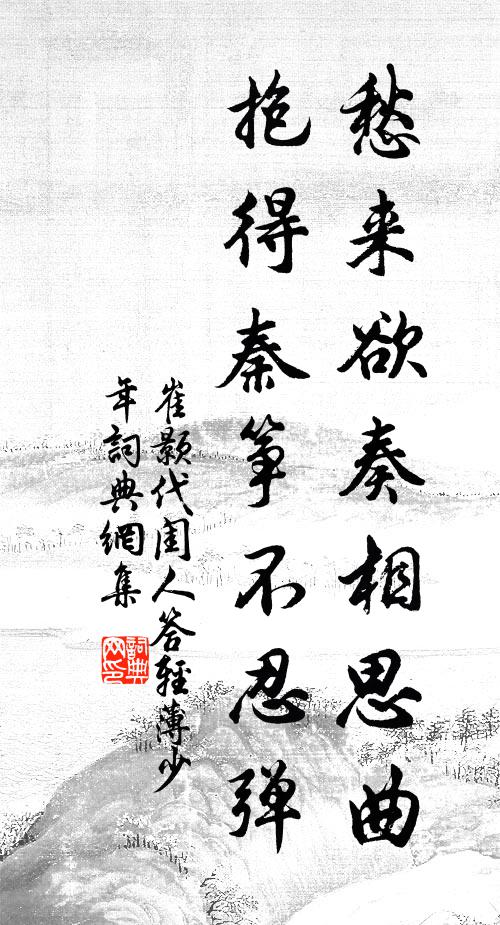 愁来欲奏相思曲
抱得秦筝不忍弹
崔颢代闺人答輕薄少
年詞典網集
詞典
网印